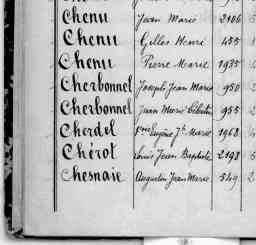 Chenu Jean Marie 2106
Chenu Gilles Henri 455
Chenu Pierre Marie 1935
Cherbonnel Joseph Jean Marie 950
Cherbonnel Jean Marie Célestin 955
Cherdel Eugène Jh Marie 1968
Chérot Louis Jean Baptiste 2193
Chesnaie Augustin Jean Marie 549